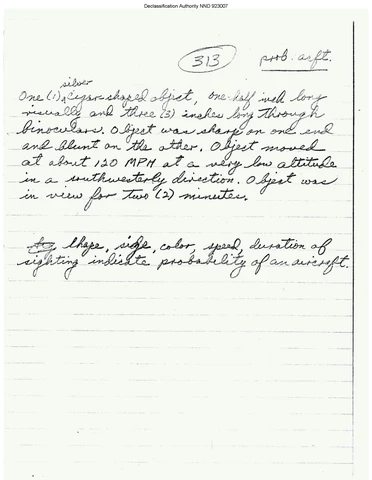 Declassification Authority NND 923007
313
prob. arft.
silver
One (1) cigar shaped object, one-half inch long
visually and three (3) inches long through
binoculars. Object was sharp on one end
and blunt on the other. Object moved
at about 120 MPH at a very low altitude
in a southwesterly direction. Object was
in view for two (2) minutes.
Shape, size, color, speed, duration of
sighting indicate probability of an aircraft.